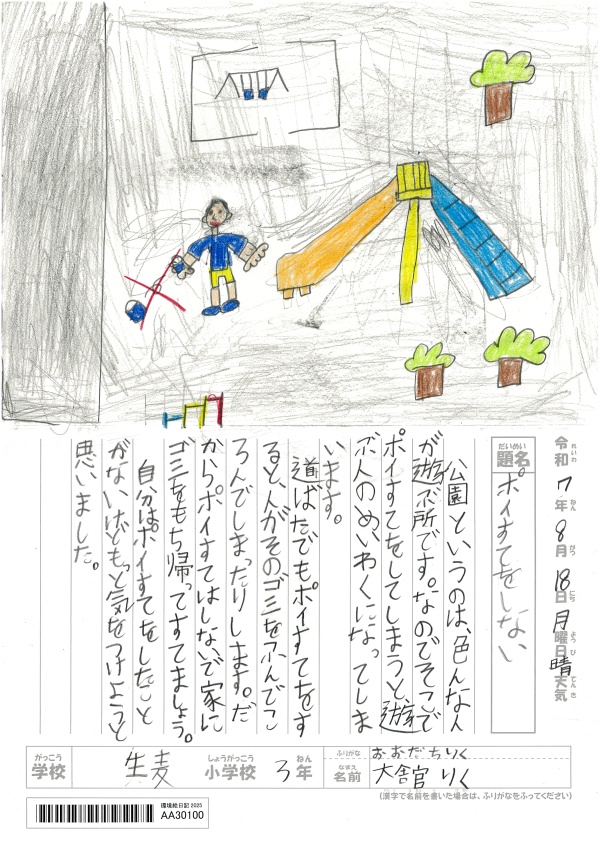 令和7年8月18日月曜日晴天気
れいわ ねん がつ にち ようび てんき
だいめい
題名
ポイすてをしない
公園というのは、色んな人
が遊ぶ所です。なのでそこで
ポイすてをしてしまうと、遊
ぶ人のめいわくになってしま
います。
道ばたでもポイすてをす
ると、人がそのゴミをふんでこ
ろんでしまったりします。だ
からポイすてはしないで家に
ゴミをもち帰ってすてましょう。
自分はポイすてをしたこと
がないけどもっと気をつけようと
思いました。
がっこう しょうがっこう ねん
学校 生麦 小学校 3年
ふりがな おおだちりく
なまえ
名前 大舘 りく
(漢字で名前を書いた場合は、ふりがなをふってください)
環境絵日記 2025
AA30100